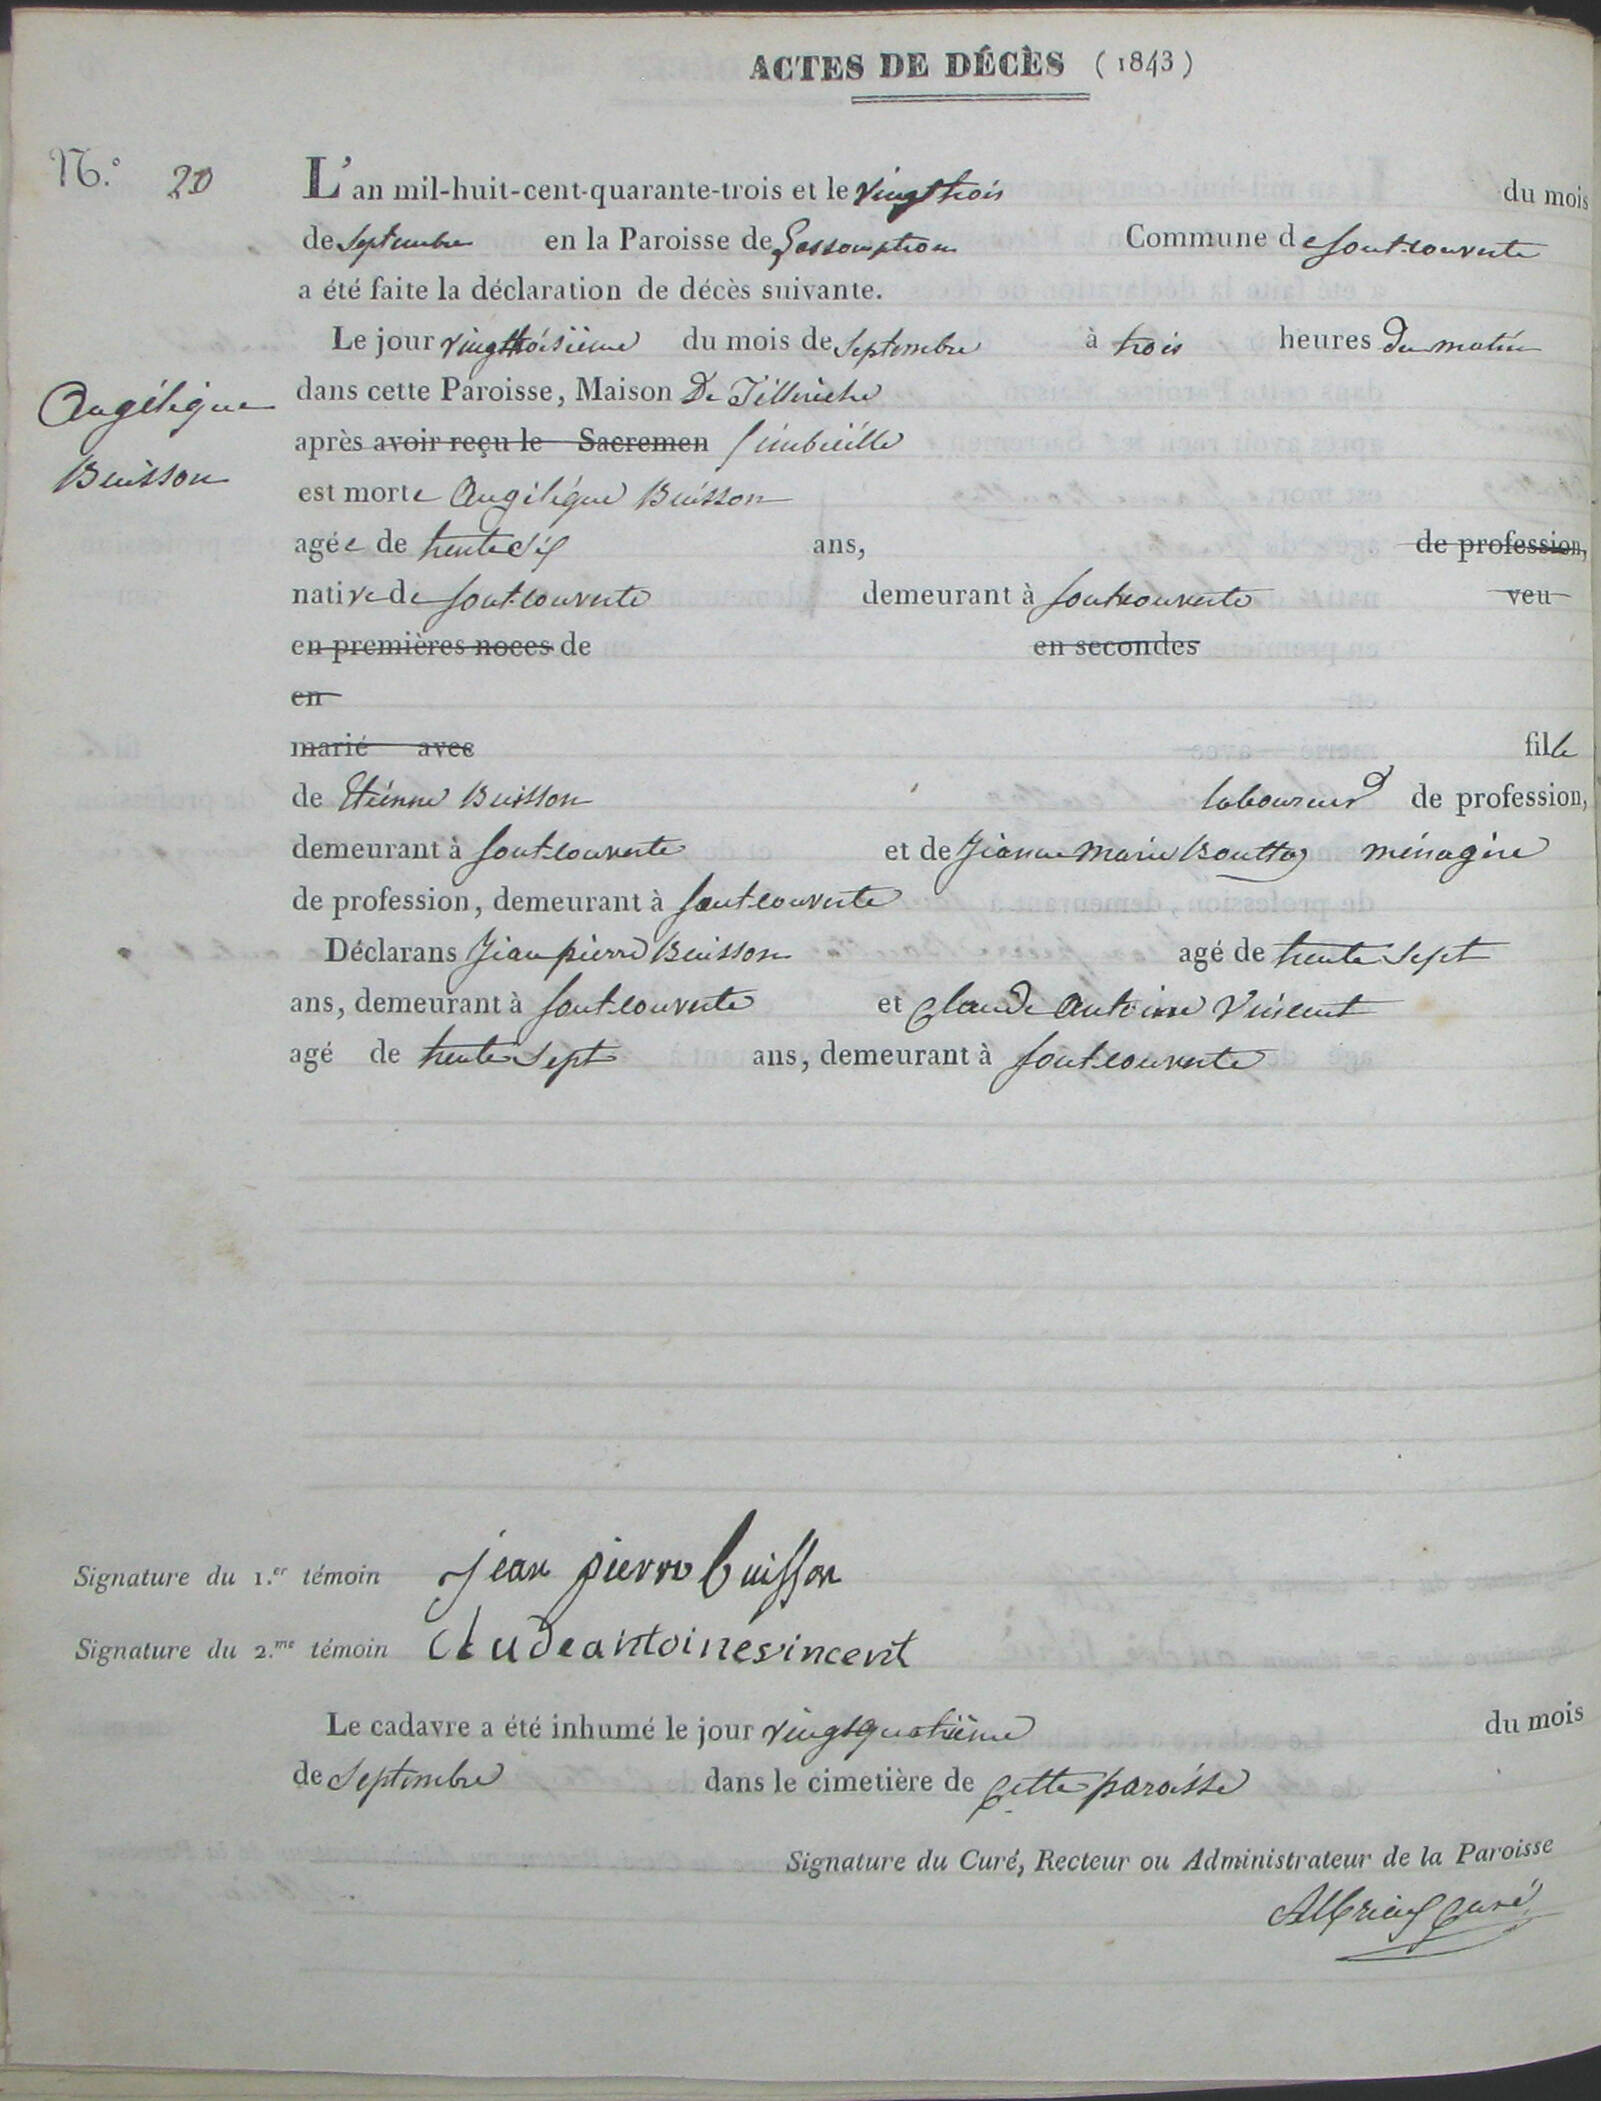 ACTES DE DÉCÈS (1843)
N.º 20 L'an mil-huit-cent-quarante-trois et le vingt trois du mois
de septembre en la Paroisse de Commune de font-couverte
a été faite la déclaration de décès suivante.
Le jour vingttroisième du mois de septembre à trois heures du matin
dans cette Paroisse, Maison De
Angélique
après avoir reçu le Sacremen
Buisson
est morte Angélique Buisson
agée de trente six ans, de profession,
native de font-couverte demeurant à font-couverte veu
en premières noces de en secondes
en
marié avec fille
de Etienne Buisson laboureur de profession,
demeurant à font-couverte et de Jeanne Marie Bouttaz ménagère
de profession, demeurant à font-couverte
Déclarans Jean pierre Buisson agé de trente sept
ans, demeurant à font-couverte et Claude Antoine Vincent
agé de trente sept ans, demeurant à font-couverte
Signature du 1.er témoin jean pierre buisson
Signature du 2.me témoin Claudeantoinevincent
Le cadavre a été inhumé le jour vingtquatrième du mois
de septembre dans le cimetière de cette paroisse
Signature du Curé, Recteur ou Administrateur de la Paroisse
Albrieux curé